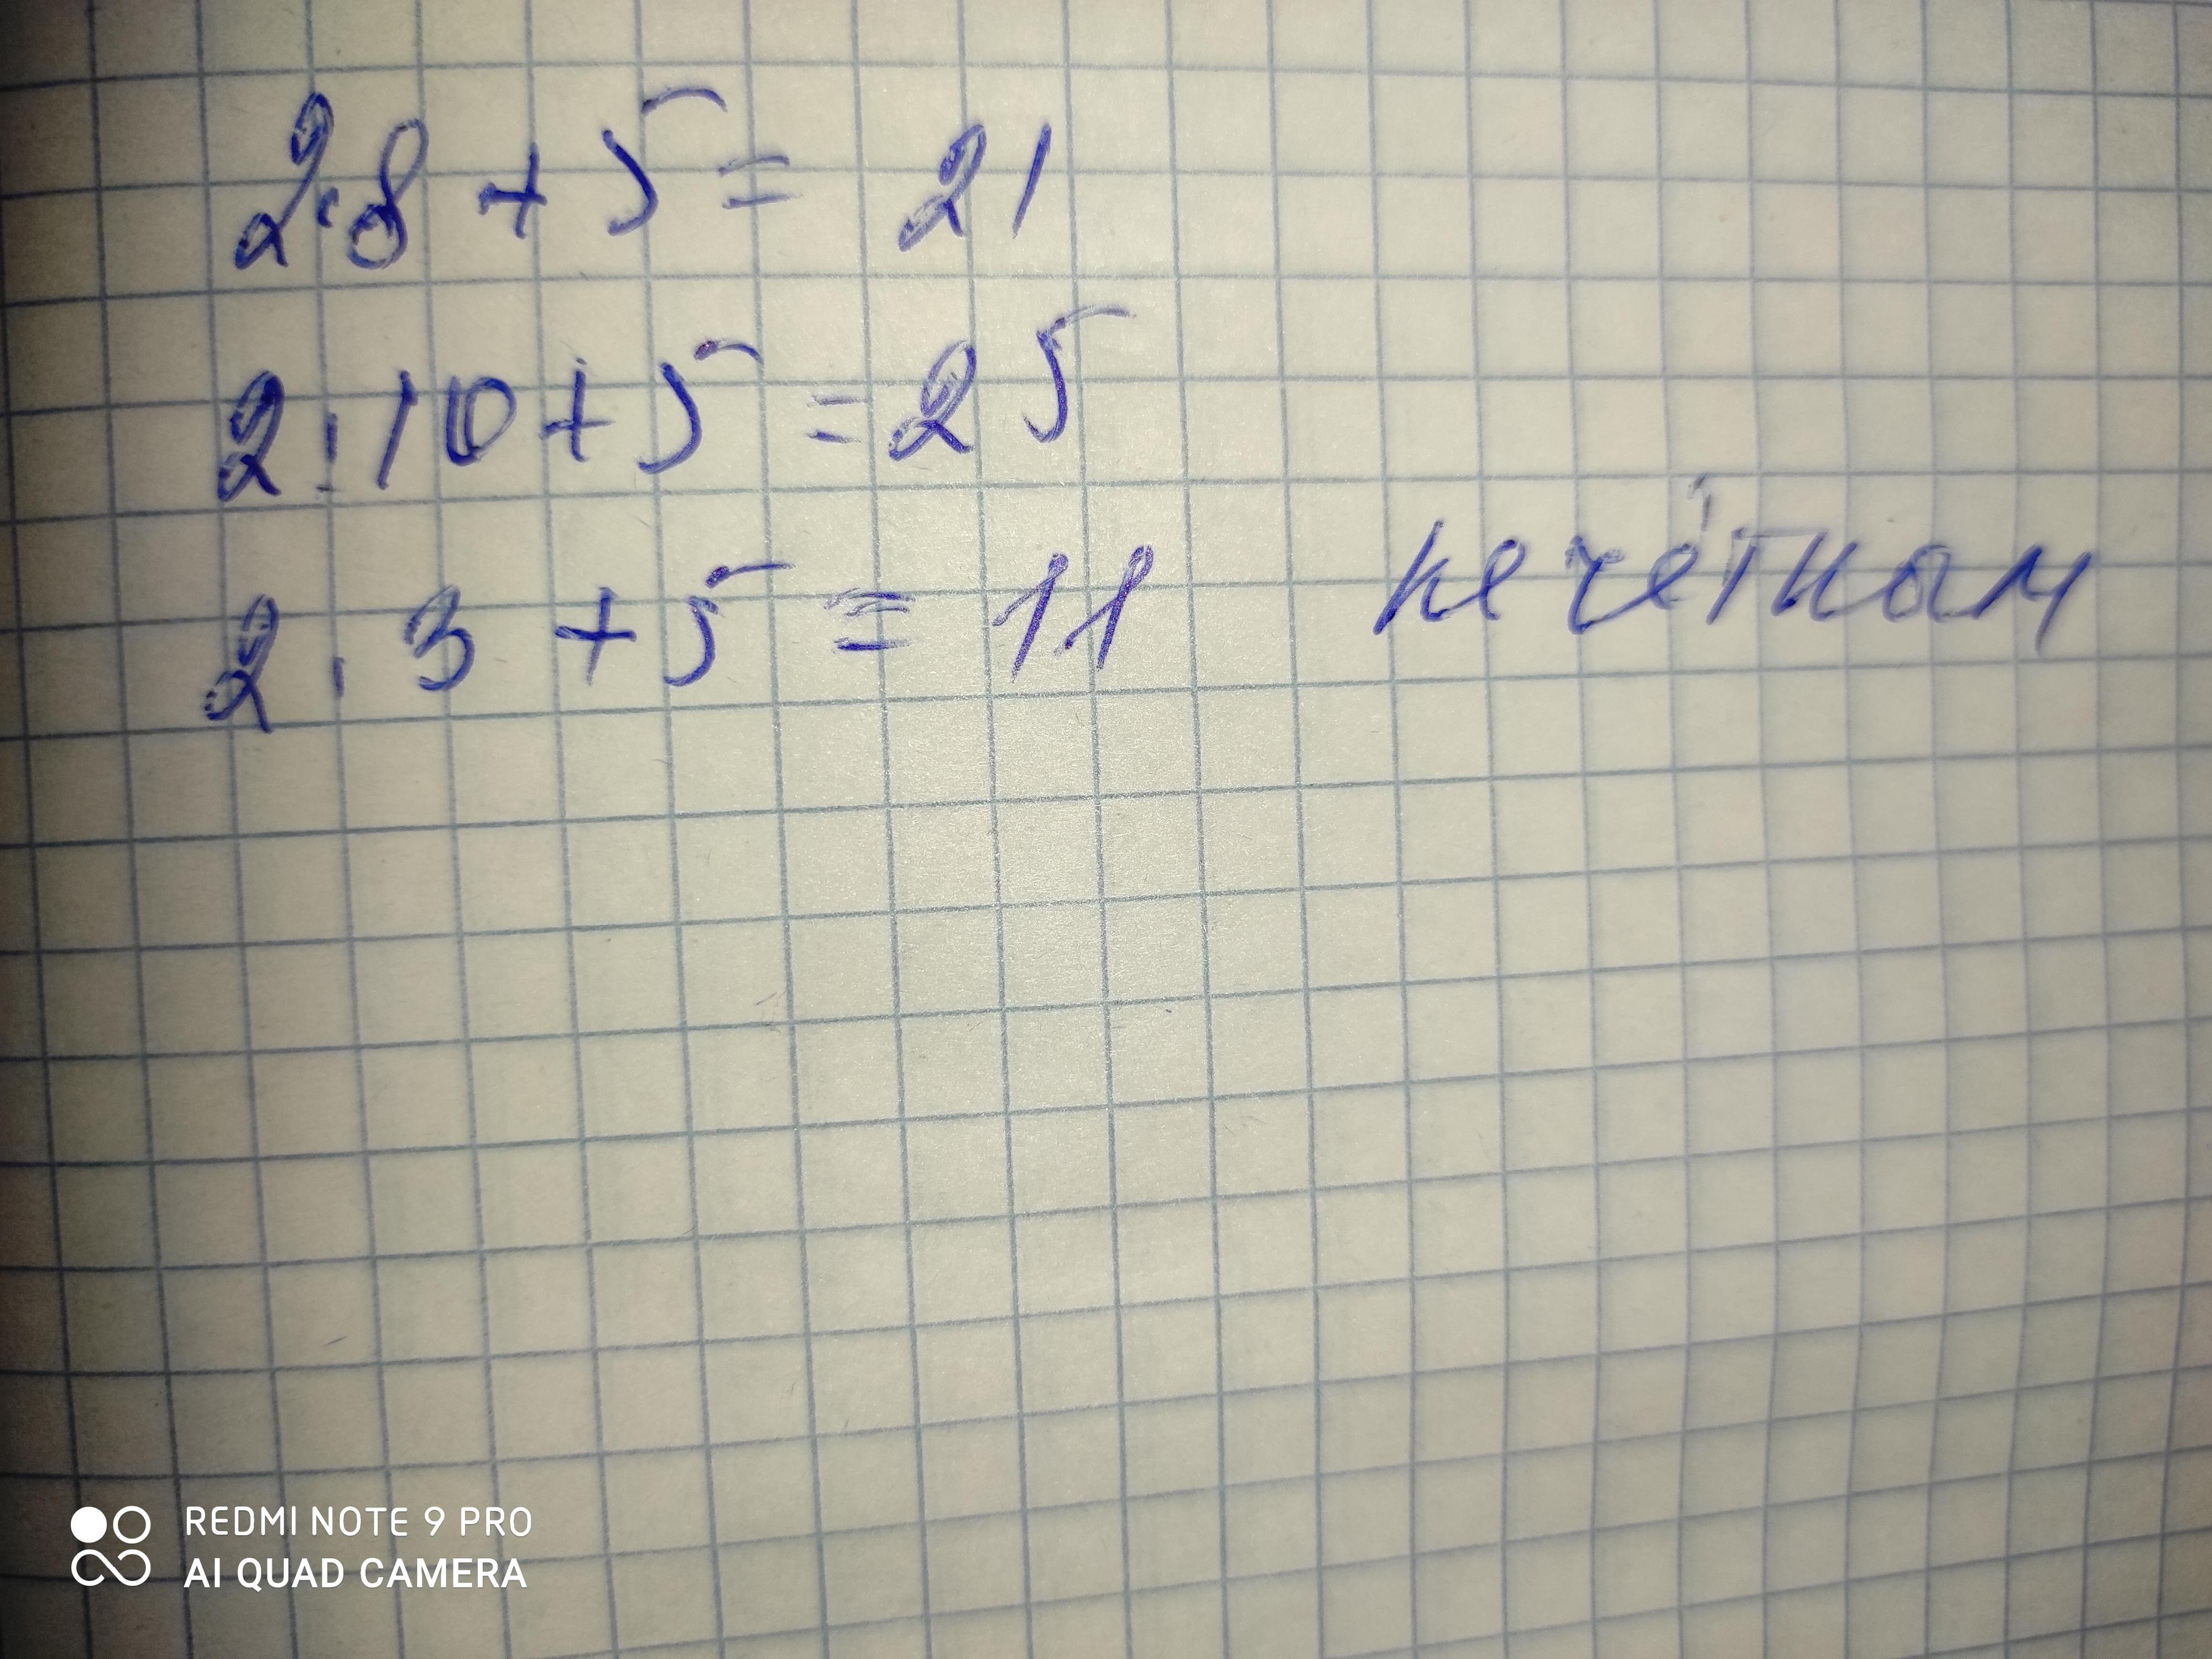 2·8 + 5 = 21
2·10 + 5 = 25
2·3 + 5 = 11 нечётнам
REDMI NOTE 9 PRO
AI QUAD CAMERA